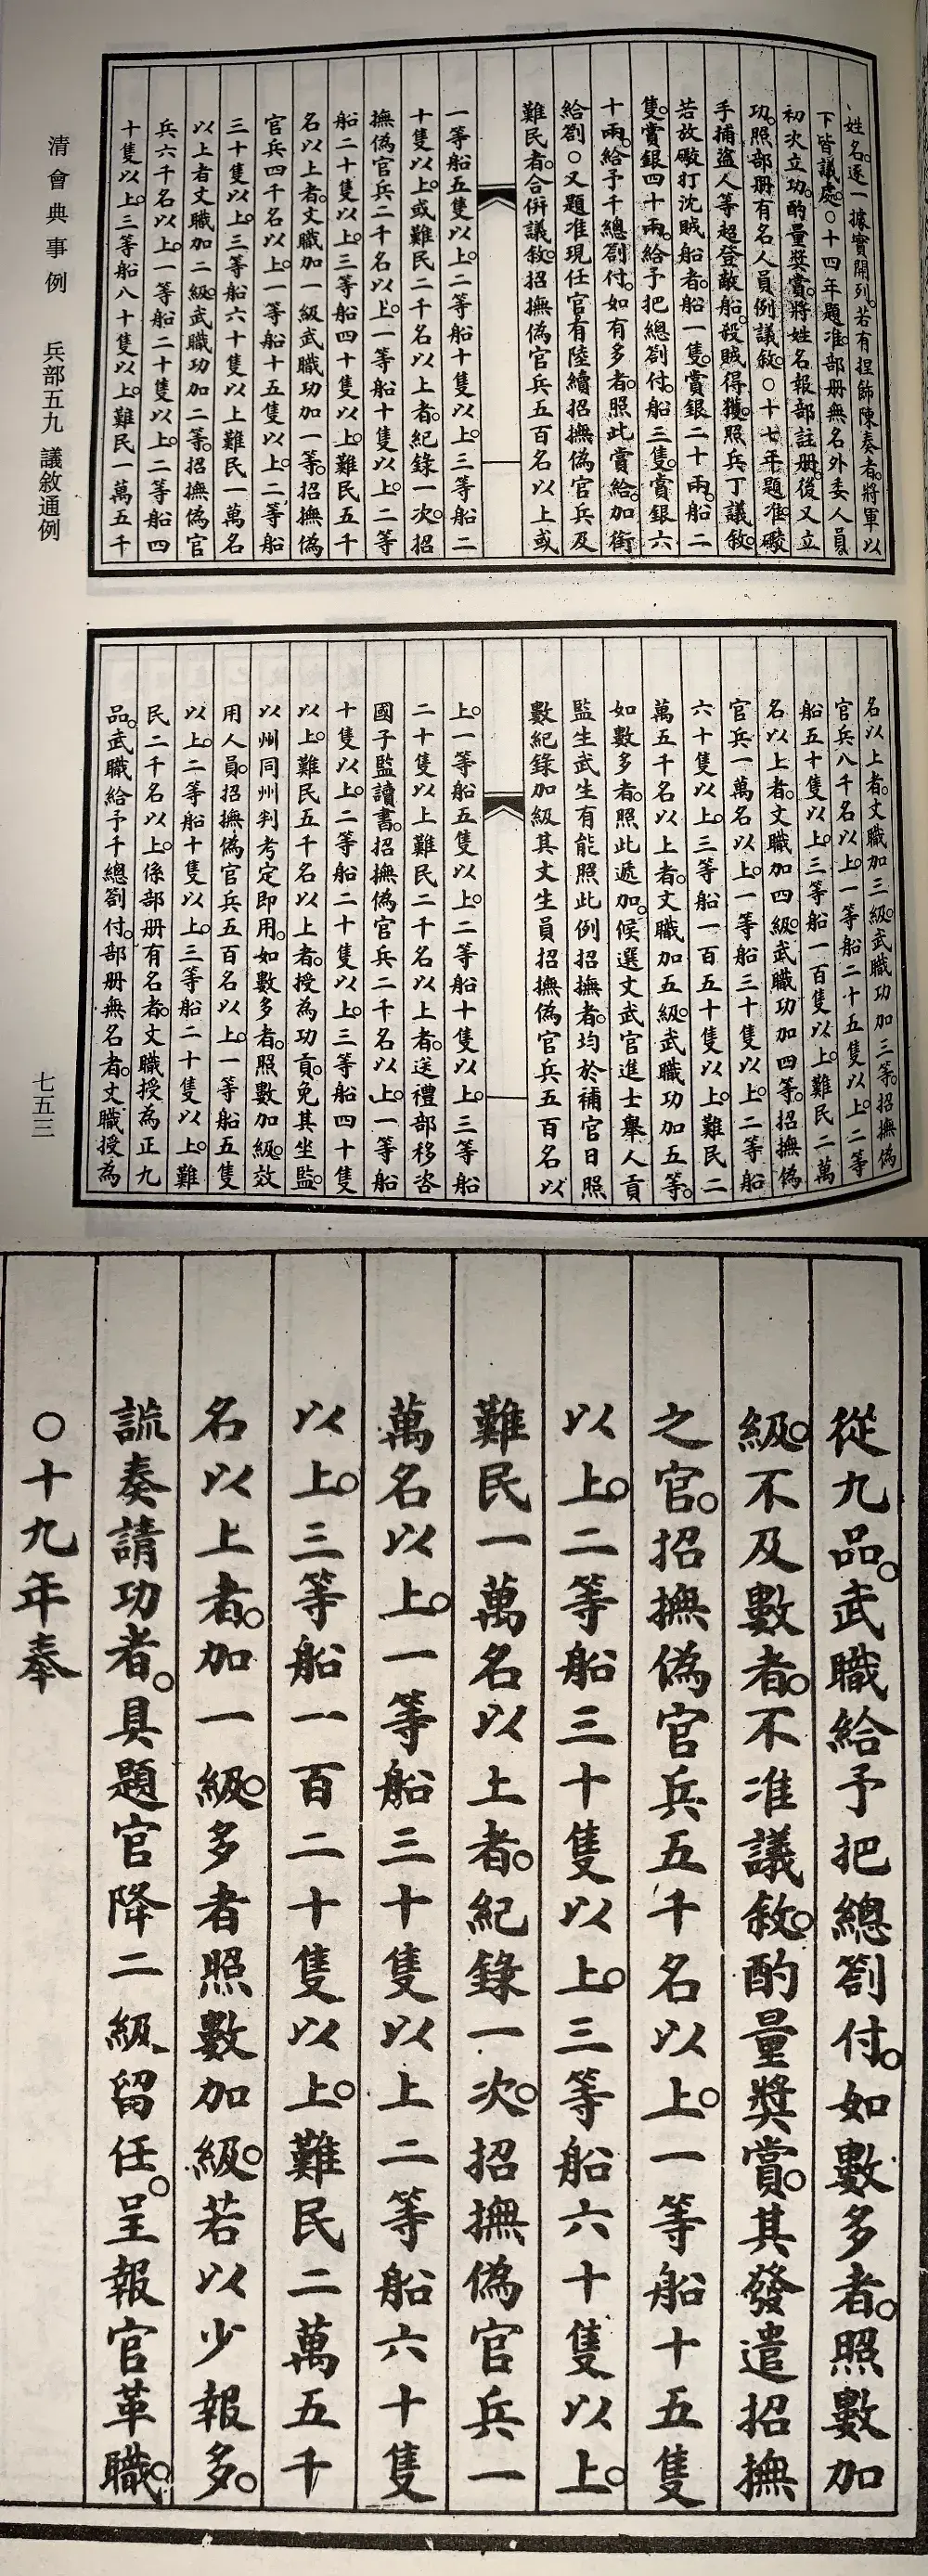 姓名。逐一據實開列。若有捏飾陳奏者。將軍以
下皆議處。○十四年題准。部册無名外委人員
初次立功。酌量獎賞。將姓名報部註册。後又立
功。照部册有名人員例議敘。○十七年題准。礮
手捕盜人等超登敵船。殺賊得獲。照兵丁議敘。
若放礮打沈賊船者。船一隻。賞銀二十兩。船二
隻。賞銀四十兩。給予把總劄付。船三隻。賞銀六
十兩。給予千總劄付。如有多者。照此賞給。加銜
給劄○又題准現任官有陸續招撫偽官兵及
難民者。合併議敘。招撫偽官兵五百名以上或
一等船五隻以上。二等船十隻以上。三等船二
十隻以上。或難民二千名以上者。紀錄一次。招
撫偽官兵二千名以上。一等船十隻以上。二等
船二十隻以上。三等船四十隻以上。難民五千
名以上者。文職加一級武職功加一等。招撫偽
官兵四千名以上。一等船十五隻以上。二等船
三十隻以上。三等船六十隻以上難民一萬名
以上者文職加二級。武職功加二等。招撫偽官
兵六千名以上。一等船二十隻以上。二等船四
十隻以上。三等船八十隻以上。難民一萬五千
清會典事例 兵部五九 議敘通例
名以上者。文職加三級。武職功加三等。招撫偽
官兵八千名以上。一等船二十五隻以上。二等
船五十隻以上。三等船一百隻以上。難民二萬
名以上者。文職加四級。武職功加四等。招撫偽
官兵一萬名以上。一等船三十隻以上。二等船
六十隻以上。三等船一百五十隻以上。難民二
萬五千名以上者。文職加五級。武職功加五等。
如數多者。照此遞加。候選文武官進士舉人貢
監生武生有能照此例招撫者。均於補官日照
數紀錄加級其文生員招撫偽官兵五百名以
上。一等船五隻以上。二等船十隻以上。三等船
二十隻以上難民二千名以上者。送禮部移咨
國子監讀書。招撫偽官兵二千名以上。一等船
十隻以上。二等船二十隻以上。三等船四十隻
以上。難民五千名以上者。授為功貢。免其坐監。
以州同州判考定即用。如數多者。照數加級。效
用人員。招撫偽官兵五百名以上。一等船五隻
以上。二等船十隻以上。三等船二十隻以上。難
民二千名以上。係部册有名者。文職授為正九
品。武職給予千總劄付。部册無名者。文職授為
七五三
從九品。武職給予把總劄付。如數多者。照數加
級。不及數者。不准議敘。酌量獎賞。其發遣招撫
之官。招撫偽官兵五千名以上。一等船十五隻
以上。二等船三十隻以上。三等船六十隻以上。
難民一萬名以上者。紀錄一次。招撫偽官兵一
萬名以上。一等船三十隻以上二等船六十隻
以上。三等船一百二十隻以上。難民二萬五千
名以上者。加一級。多者照數加級。若以少報多。
謊奏請功者。具題官降二級留任。呈報官革職。
○十九年奉